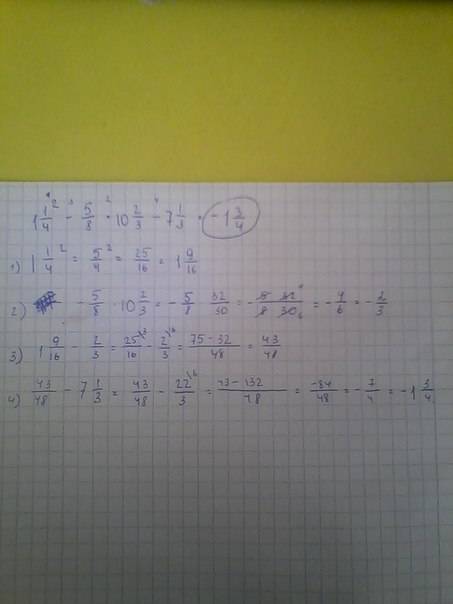 1 1/4² - 5/8 · 10 2/3 - 7 1/3 = -1 3/4
1) 1 1/4² = 5/4² = 25/16 = 1 9/16
2) - 5/8 · 10 2/3 = - 5/8 32/30 = - 8 32/8 30 = - 4/6 = - 2/3
3) 1 9/16 - 2/3 = 25/16 - 2/3 = 75-32/48 = 43/48
4) 43/48 - 7 1/3 = 43/48 - 22/3 = 43-132/48 = -84/48 = - 7/4 = -1 3/4